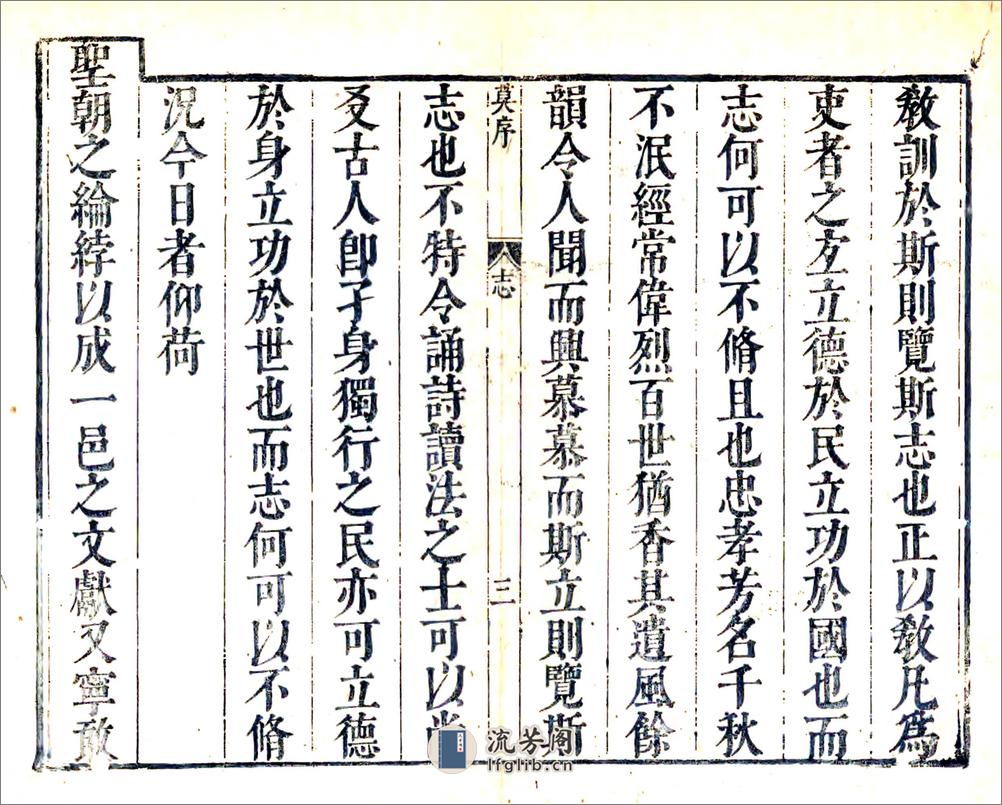 教訓於斯則覽斯志也正以教凡為
吏者之交立德於民立功於國也而
志何可以不脩且也忠孝芳名千秋
不泯經常偉烈百世猶香其遺風餘
韻令人聞而興慕慕而斯立則覽斯
莫序 志 三
志也不特令誦詩讀法之士可以尚
叐古人即孑身獨行之民亦可立德
於身立功於世也而志何可以不脩
況今日者仰荷
聖朝之綸綍以成一邑之文獻又寧敢
流芳阁
lfglib.cn